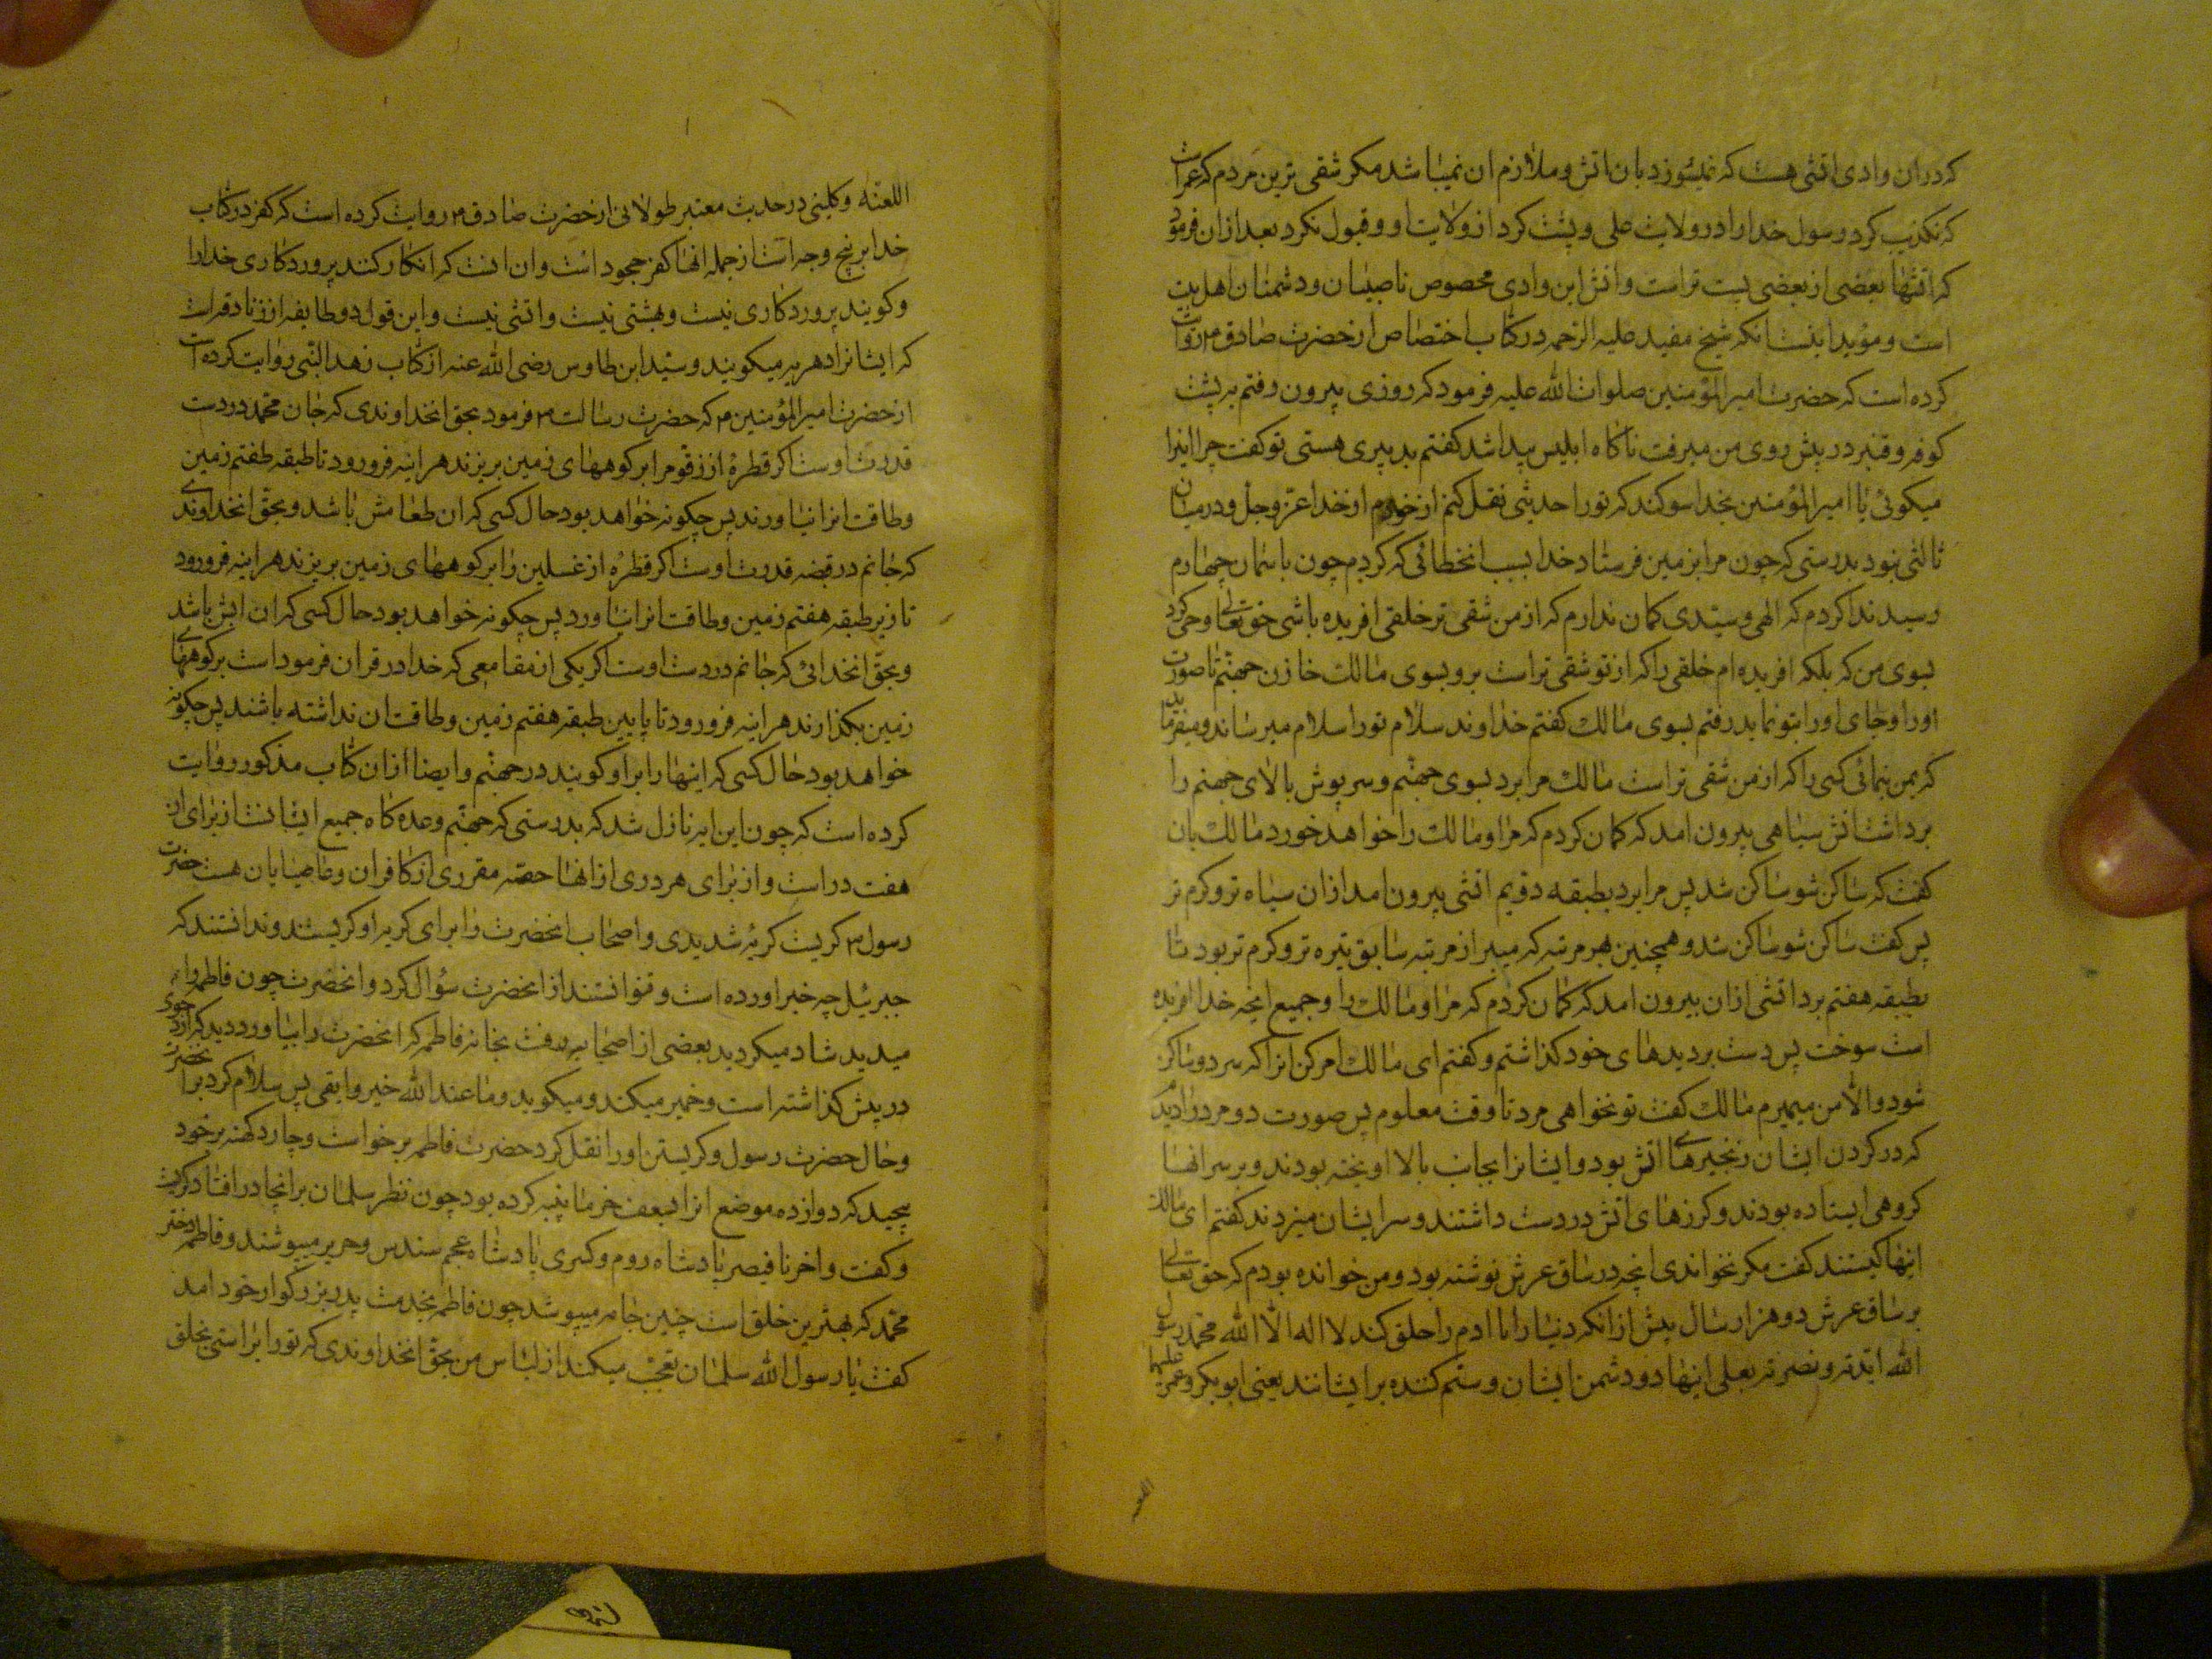 که دران وادی اتشی هست که نمیسوزد بان اتش و ملازم ان نمیباشد مکر شقی ترین مردم که عمر است
که تکذیب کرد رسول خدا را در ولایت علی و پشت کرد از ولایت او و قبول نکرد بعد ازان فرمود
که اتشها بعضی از بعضی پست تر است و اتش این وادی مخصوص ناصبیان و دشمنان اهل بیت
است و مؤید اینست انکه شیخ مفید علیه الرحمه در کتاب اختصاص از حضرت صادق ۴ روایت
کرده است که حضرت امیر المؤمنین صلوات الله علیه فرمود که روزی بیرون رفتم به پشت
کوفه و قنبر در پیش روی من میرفت ناکاه ابلیس پیدا شد کفتم بد پیری هستی تو کفت چرا اینرا
میکوئی یا امیر المؤمنین بخدا سوکند که تورا حدیثی نقل کنم از خودم از خدا عز و جل و در میان
ثالثی نبود بدرستی که چون مرا بزمین فرستاد خدا بسبب انخطائی که کردم چون باسمان چهارم
رسید ندا کردم که الهی و سیدی کمان ندارم که از من شقی تر خلقی افریده باشی حق تعالی وحی کرد
بسوی من که بلکه افریده ام خلقی را که از تو شقی تر است برو بسوی مالک خازن جهنم تا صورت
اورا و جای اورا بتو نماید رفتم بسوی مالک کفتم خداوند سلام تورا سلام میرساند و میفرماید
که بمن بنمائی کسی را که از من شقی تر است مالک مرا برد بسوی جهنم و سرپوش بالای جهنم را
برداشت اتش سیاهی بیرون امد که کمان کردم که مرا و مالک را خواهد خورد مالک بان
کفت که ساکن شو ساکن شد پس مرا برد بطبقه دویم اتشی بیرون امد ازان سیاه تر و کرم تر
پس کفت ساکن شو ساکن شد و همچنین بهر مرتبه که میبرد از مرتبه سابق تیره تر و کرم تر بود تا
بطبقه هفتم برد اتشی ازان بیرون امد که کمان کردم که مرا و مالک را و جمیع انچه خدا افریده
است سوخت پس دست بر دیدهای خود کذاشتم و کفتم ای مالک امر کن انرا که سرد و ساکن
شود والا من میمیرم مالک کفت تو نخواهی مرد تا وقت معلوم پس صورت دو مرد را دیدم
که در کردن ایشان زنجیرهای اتش بود و ایشانرا بجانب بالا اویخته بودند و بر سر انها
کروهی ایستاده بودند و کرزهای اتش در دست داشتند و بر سر ایشان میزدند کفتم ای مالک
اینها کیستند کفت مکر نخواندی انچه در ساق عرش نوشته بود و من خوانده بودم که حق تعالی
بر ساق عرش دو هزار سال پیش ازانکه دنیا را یا ادم را خلق کند لا اله الا الله محمد رسول
الله ایدته و نصرته بعلی اینها دو دشمن ایشان و ستم کننده بر ایشانند یعنی ابوبکر و عمر علیهما
اللعنه و کلینی در حدیث معتبر طولانی از حضرت صادق ۴ روایت کرده است که کفر در کتاب
خدا بر پنج وجه است از جمله انها کفر جحود است و ان انست که انکار کنند پروردکاری خدا را
و کویند پروردکاری نیست و بهشتی نیست و اتشی نیست و این قول دو طایفه از زنادقه است
که ایشانرا دهریه میکویند و سید ابن طاوس رضی الله عنه از کتاب زهد النبی روایت کرده است
از حضرت امیر المؤمنین ۴ که حضرت رسالت ۴ فرمود بحق انخداوندی که جان محمد در دست
قدرت اوست اکر قطرهٔ از زقوم را بر کوههای زمین بریزند هراینه فرو رود تا طبقه هفتم زمین
و طاقت انرا نیاورند پس چکونه خواهد بود حال کسی که ان طعامش باشد و بحق انخداوندی
که جانم در قبضه قدرت اوست اکر قطرهٔ از غسلین را بر کوههای زمین بریزند هراینه فرو رود
تا زیر طبقه هفتم زمین و طاقت انرا نیاورد پس چکونه خواهد بود حال کسی که ان ابش باشد
و بحق انخدائی که جانم در دست اوست اکر یکی از مقامعی که خدا در قران فرموداست بر کوههای
زمین بکذارند هراینه فرو رود تا پایین طبقه هفتم زمین و طاقت ان نداشته باشند پس چکونه
خواهد بود حال کسی که اینها را بر او کویند در جهنم و ایضا ازان کتاب مذکور روایت
کرده است که چون این ایه نازل شد که بدرستی که جهنم وعده کاه جمیع ایشانست از برای ان
هفت در است و از برای هر دری از انها حصه مقرری از کافران و عاصیایان هست حضرت
رسول ۳ کریست کریهٔ شدیدی و اصحاب انحضرت را برای کریه او کریستند و ندانستند که
جبرئیل چه خبر اورده است و نتوانستند از انحضرت سؤال کرد و انحضرت چون فاطمه را
میدید شاد میکردید بعضی از اصحاب برفت بخانه فاطمه که انحضرت را بیاورد دید که ارد جوی
در پیش کذاشته است و خمیر میکند و میکوید و ما عند الله خیر و ابقی پس سلام کرد بر انحضرت
و حال حضرت رسول و کریستن اورا نقل کرد حضرت فاطمه برخواست و چادر کهنه بر خود
پیچید که دوازده موضع انرا بسعف خرما پنبه کرده بود چون نظر سلمان بر انچادر افتاد کریست
و کفت واحزنا قیصر پادشاه روم و کسری پادشاه عجم سندس و حریر میپوشند و فاطمه دختر
محمد که بهترین خلق است چنین جامه میپوشد چون فاطمه بخدمت پدر بزرکوار خود امد
کفت یا رسول الله سلمان تعجب میکند از لباس من بحق انخداوندی که تورا براستی بخلق